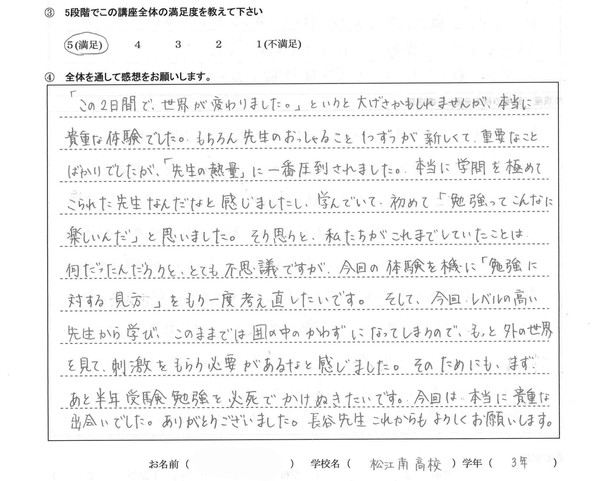 ③ 5段階でこの講座全体の満足度を教えて下さい
5(満足) 4 3 2 1(不満足)
④ 全体を通して感想をお願いします。
「この2日間で、世界が変わりました。」というと大げさかもしれませんが、本当に
貴重な体験でした。もちろん先生のおっしゃること1つずつが新しくて、重要なこと
ばかりでしたが、「先生の熱量」に一番圧到されました。本当に学問を極めて
こられた先生なんだなと感じましたし、学んでいて、初めて「勉強ってこんなに
楽しいんだ」と思いました。そう思うと、私たちがこれまでしていたことは
何だったんだろうと、とても不思議ですが、今回の体験を機に「勉強に
対する見方」をもう一度考え直したいです。そして、今回レベルの高い
先生から学び、このままでは囲の中のかわずになってしまうので、もっと外の世界
を見て、刺激をもらう必要があるなと感じました。そのためにも、まず
あと半年受験勉強を必死でかけぬきたいです。今回は本当に貴重な
出合いでした。ありがとうございました。長谷先生これからもよろしくお願いします。
お名前 ( ) 学校名 ( 松江南高校 ) 学年 ( 3年 )